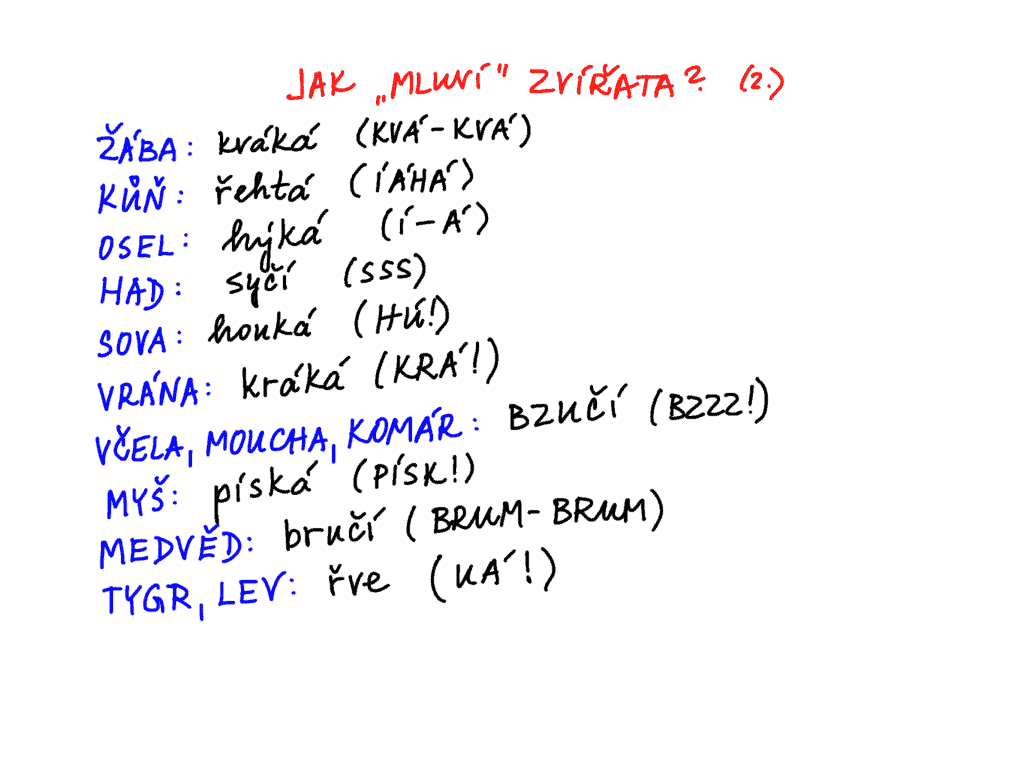 JAK „MLUVÍ" ZVÍŘATA? (2.)
ŽÁBA: kváká (KVÁ-KVÁ)
KŮŇ: řehtá (ÍÁHÁ)
OSEL: hýká (Í-Á)
HAD: syčí (SSS)
SOVA: houká (HÚ!)
VRÁNA: kráká (KRÁ!)
VČELA, MOUCHA, KOMÁR: BZUČÍ (BZZZ!)
MYŠ: píská (PÍSK!)
MEDVĚD: bručí (BRUM-BRUM)
TYGR, LEV: řve (UÁ!)